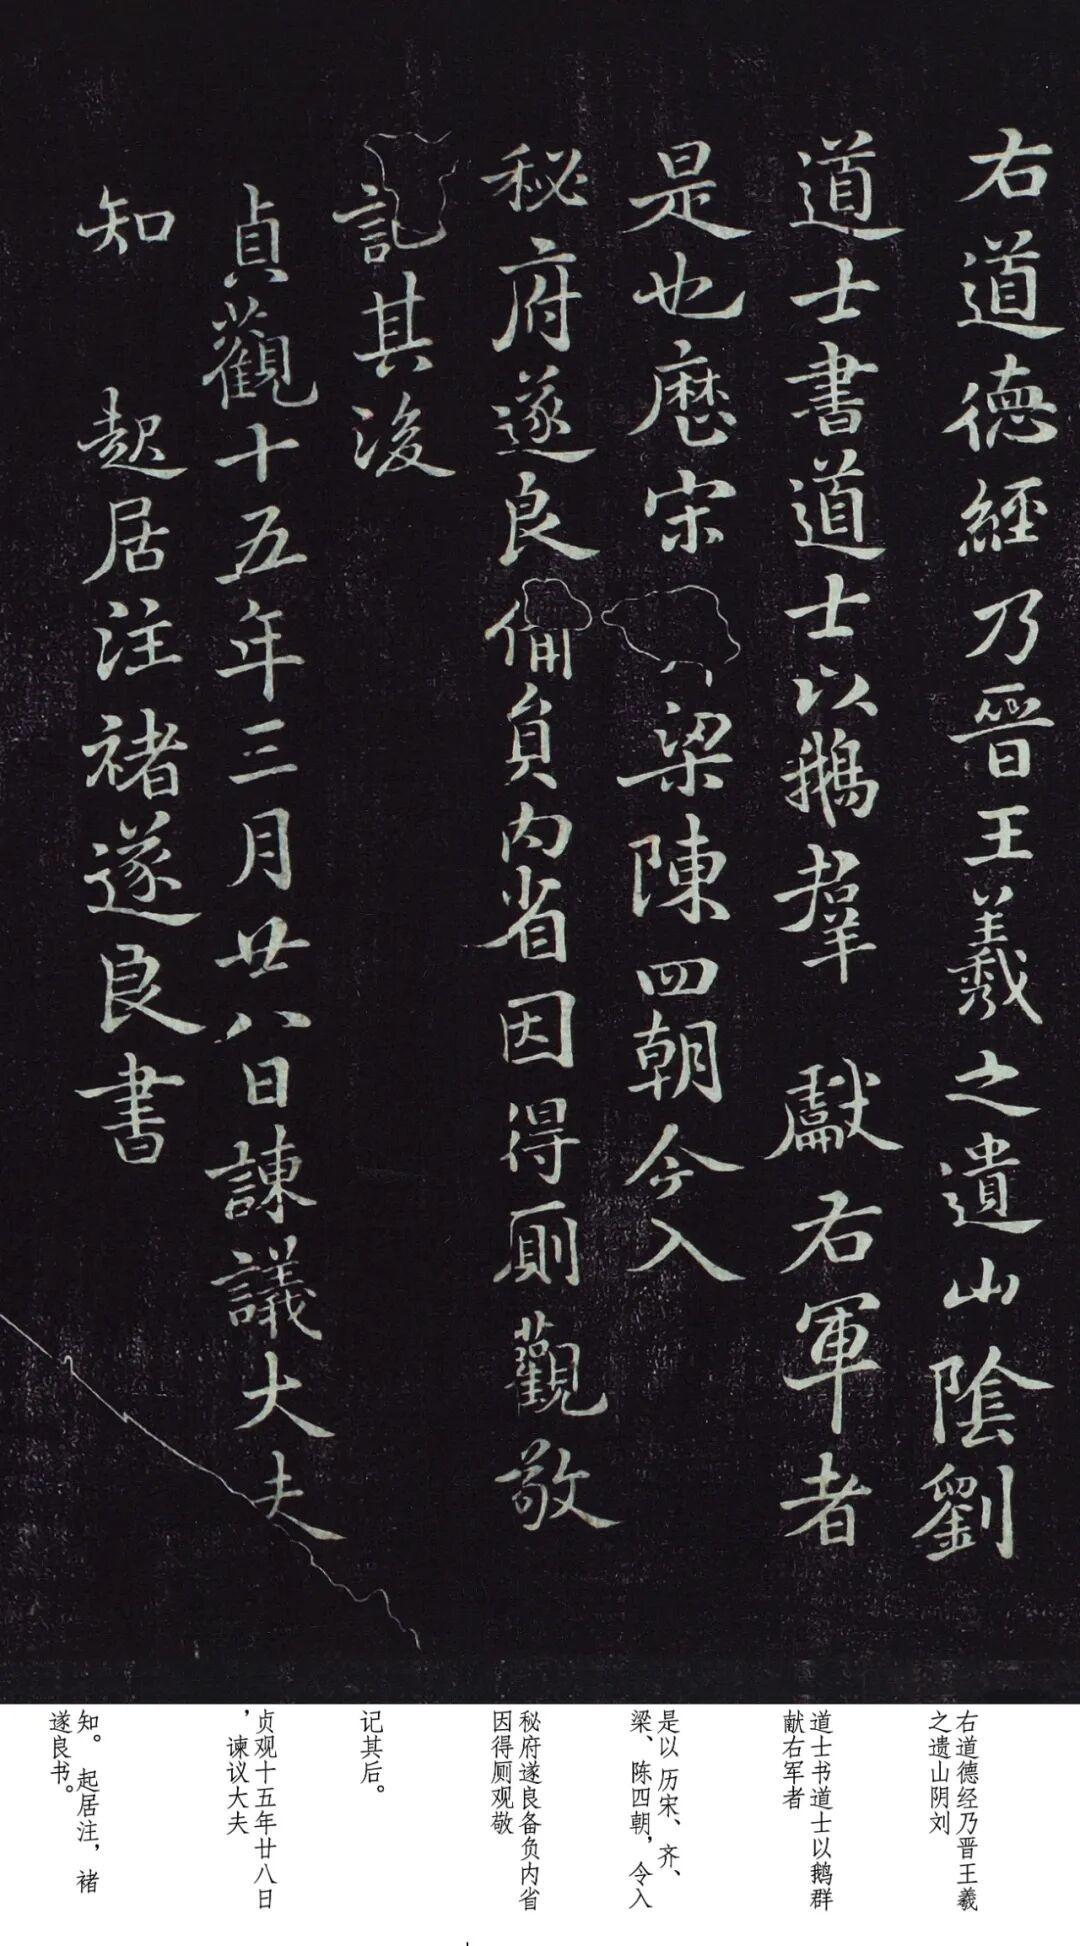 右道德經乃晉王羲之遺山陰劉
道士書道士以鵝羣獻右軍者
是也歷宋梁陳四朝今入
秘府遂良備負內省因得厠觀敬
記其後
貞觀十五年三月廿八日諫議大夫
知起居注褚遂良書
右道德经乃晋王羲
之遗山阴刘
道士书道士以鹅群
献右军者
是以历宋、齐、
梁、陈四朝，令入
秘府遂良备负内省
因得厕观敬
记其后。
贞观十五年廿八日
，谏议大夫
知。起居注，褚
遂良书。